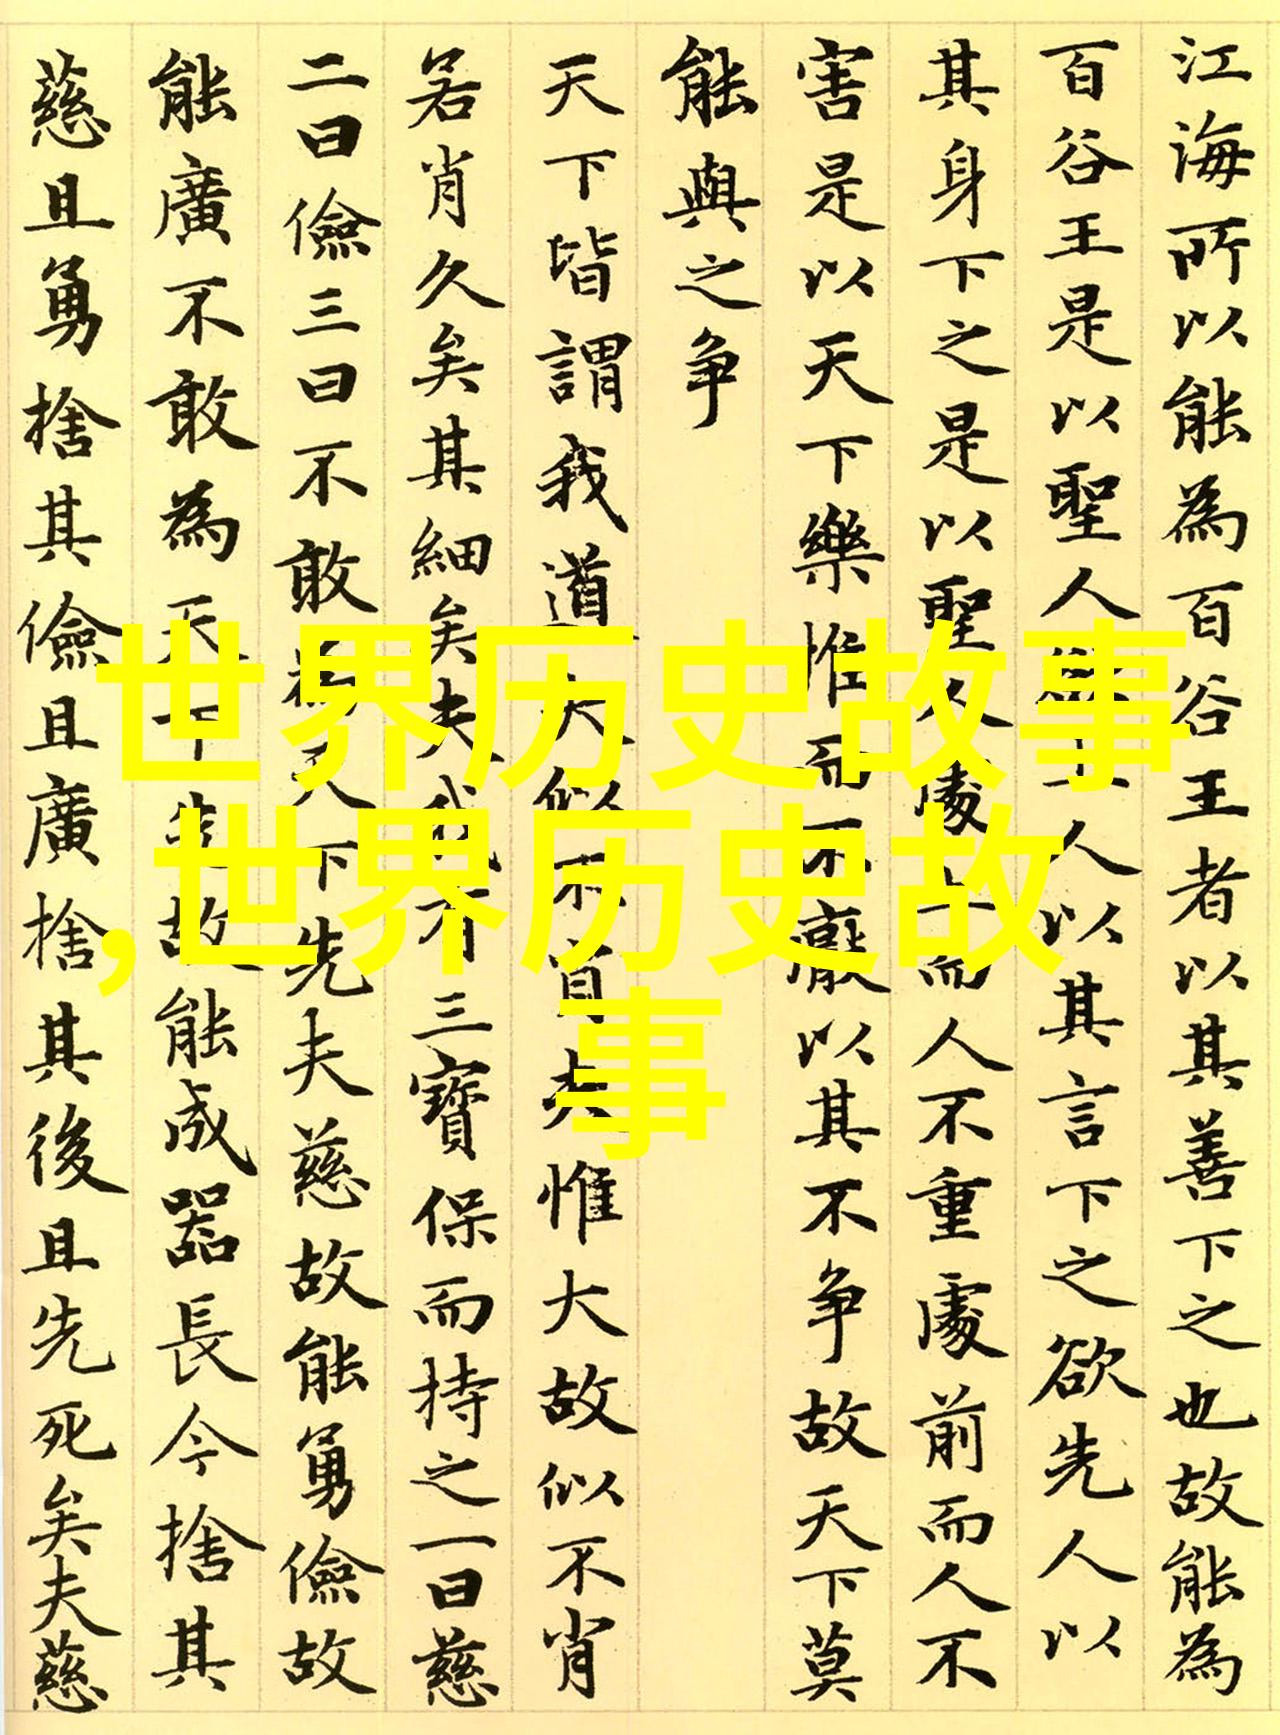 江海所以能為百谷王者以其善下之也故能為
百谷王是以聖人欲上人以其言下之欲先人以
其身下之是以聖人處上而人不重處前而人不
害是以天下樂惟而不厭以其不争故天下莫
能與之争
天下皆謂我道大似不肖夫惟大故似不肖
若肖久矣其細矣夫我有三寶保而持之一曰慈
二曰儉三曰不敢為天下先夫慈故能勇儉故
能廣不敢為天下先故能成器長今捨其
慈且勇捨其儉且廣捨其後且先死矣夫慈
世界历史故事
,世界历史故
事